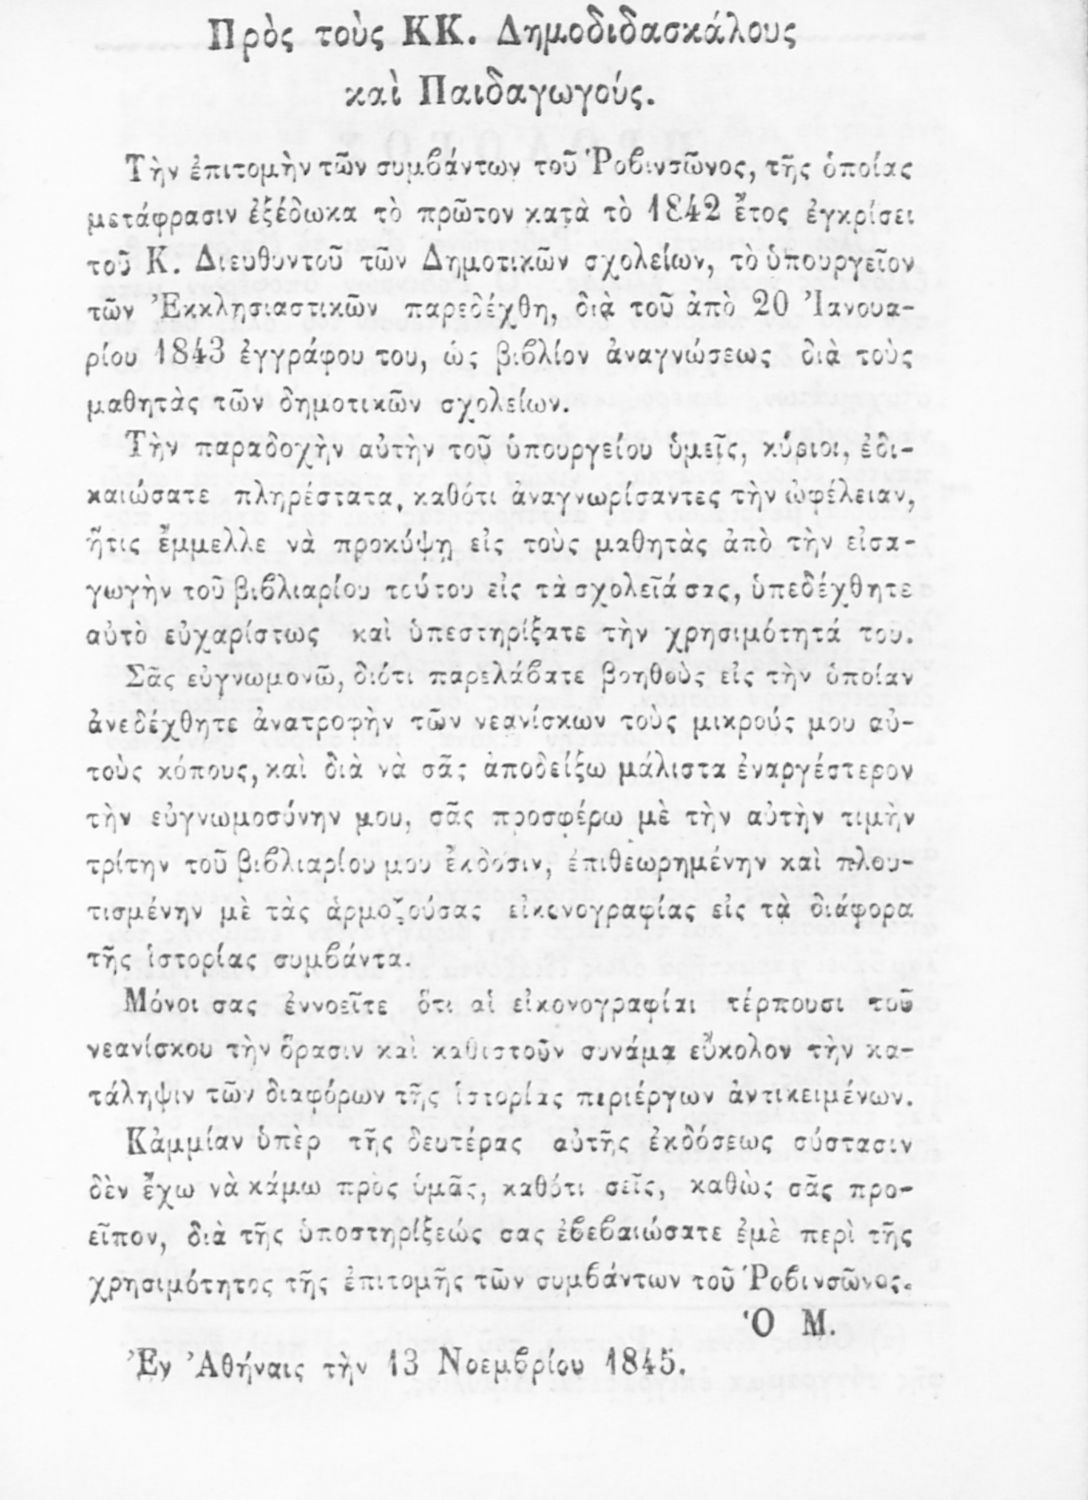 Πρὸς τοὺς ΚΚ. Δημοδιδασκάλους
καὶ Παιδαγωγούς.
Τὴν ἐπιτομὴν τῶν συμβάντων τοῦ Ῥοβινσῶνος, τῆς ὁποίας
μετάφρασιν ἐξέδωκα τὸ πρῶτον κατὰ τὸ 1842 ἔτος ἐγκρίσει
τοῦ Κ. Διευθυντοῦ τῶν Δημοτικῶν σχολείων, τὸ ὑπουργεῖον
τῶν Ἐκκλησιαστικῶν παρεδέχθη, διὰ τοῦ ἀπὸ 20 Ἰανουα-
ρίου 1843 ἐγγράφου του, ὡς βιβλίον ἀναγνώσεως διὰ τοὺς
μαθητὰς τῶν δημοτικῶν σχολείων.
Τὴν παραδοχὴν αὐτὴν τοῦ ὑπουργείου ὑμεῖς, κύριοι, ἐδι-
καιώσατε πληρέστατα, καθότι ἀναγνωρίσαντες τὴν ὠφέλειαν,
ἥτις ἔμμελλε νὰ προκύψῃ εἰς τοὺς μαθητὰς ἀπὸ τὴν εἰσα-
γωγὴν τοῦ βιβλιαρίου τούτου εἰς τὰ σχολεῖά σας, ὑπεδέχθητε
αὐτὸ εὐχαρίστως καὶ ὑπεστηρίξατε τὴν χρησιμότητά του.
Σᾶς εὐγνωμονῶ, διότι παρελάβατε βοηθοὺς εἰς τὴν ὁποίαν
ἀνεδέχθητε ἀνατροφὴν τῶν νεανίσκων τοὺς μικρούς μου αὐ-
τοὺς κόπους, καὶ διὰ νὰ σᾶς ἀποδείξω μάλιστα ἐναργέστερον
τὴν εὐγνωμοσύνην μου, σᾶς προσφέρω μὲ τὴν αὐτὴν τιμὴν
τρίτην τοῦ βιβλιαρίου μου ἔκδοσιν, ἐπιθεωρημένην καὶ πλου-
τισμένην μὲ τὰς ἁρμοζούσας εἰκονογραφίας εἰς τὰ διάφορα
τῆς ἱστορίας συμβάντα.
Μόνοι σας ἐννοεῖτε ὅτι αἱ εἰκονογραφίαι τέρπουσι τοῦ
νεανίσκου τὴν ὅρασιν καὶ καθιστοῦν συνάμα εὔκολον τὴν κα-
τάληψιν τῶν διαφόρων τῆς ἱστορίας περιέργων ἀντικειμένων.
Κἀμμίαν ὑπὲρ τῆς δευτέρας αὐτῆς ἐκδόσεως σύστασιν
δὲν ἔχω νὰ κάμω πρὸς ὑμᾶς, καθότι σεῖς, καθὼς σᾶς προ-
εῖπον, διὰ τῆς ὑποστηρίξεώς σας ἐβεβαιώσατε ἐμὲ περὶ τῆς
χρησιμότητος τῆς ἐπιτομῆς τῶν συμβάντων τοῦ Ῥοβινσῶνος.
Ὁ Μ.
Ἐν Ἀθήναις τὴν 13 Νοεμβρίου 1845.